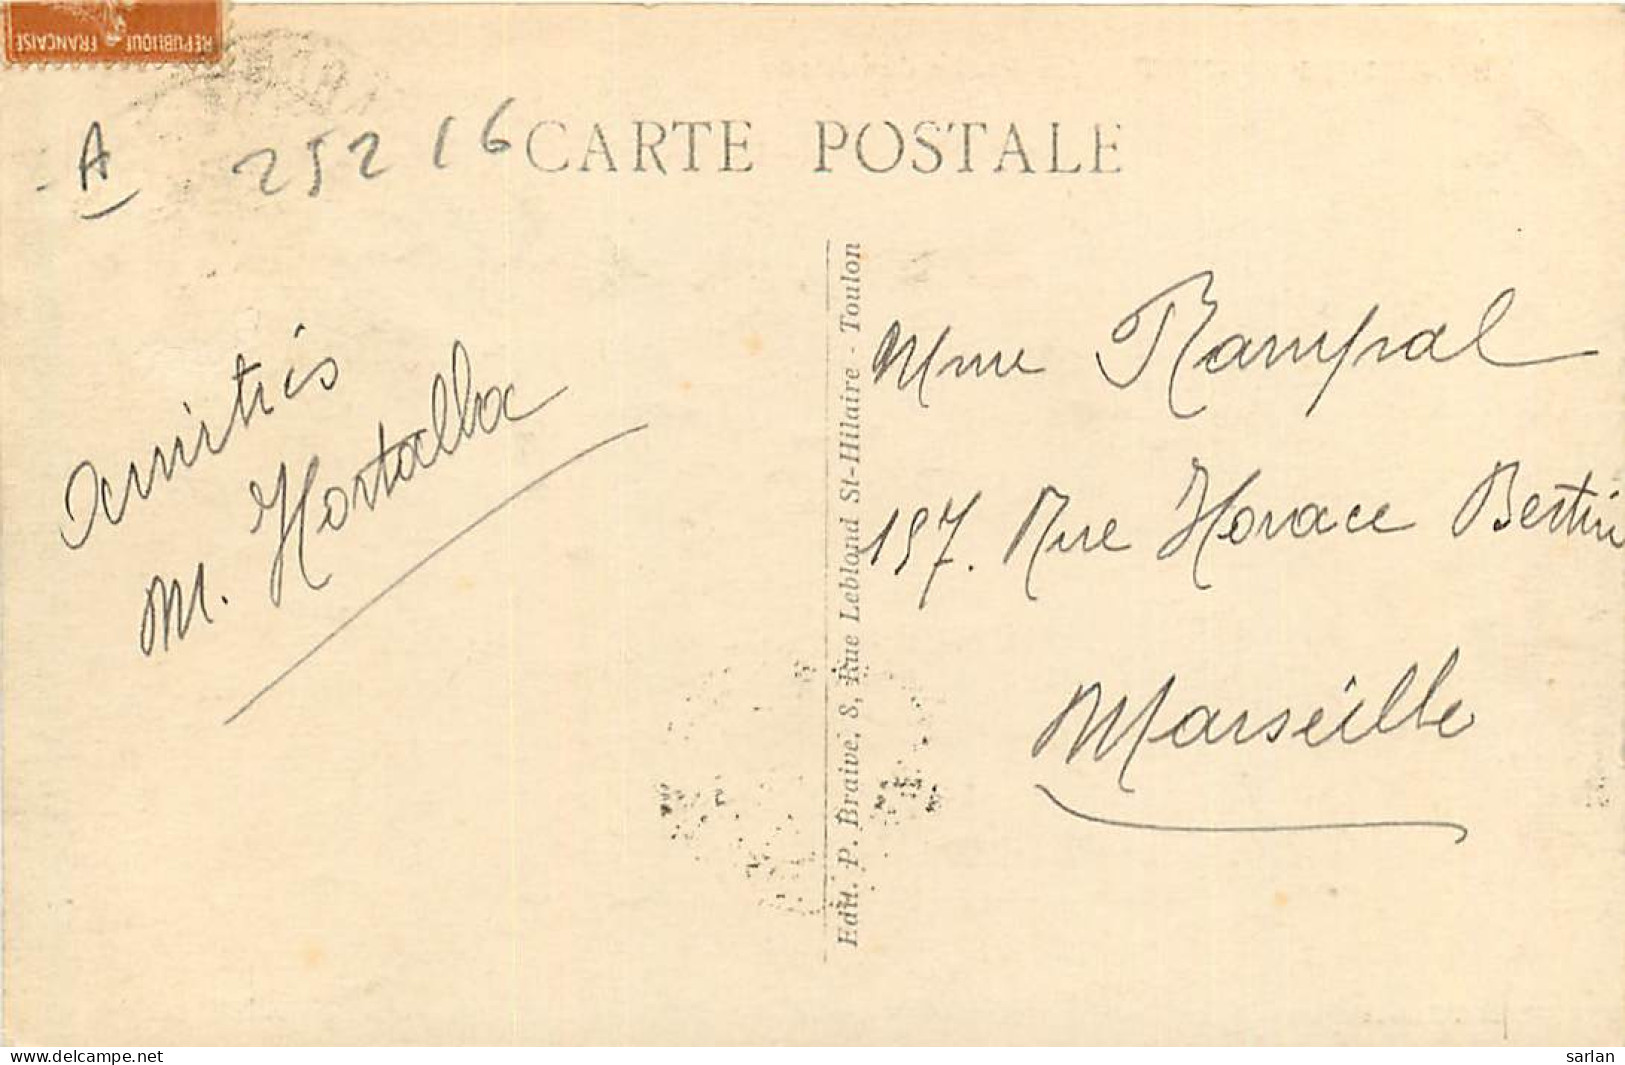 REPUBLIQUE FRANÇAISE
A
25216
CARTE POSTALE
amitiés
M. Hortalba
Edit. P. Braive, 8, Rue Leblond St-Hilaire - Toulon
Mme Rampal
157. Rue Horace Bertin
Marseille
delcampe.net
sarlan